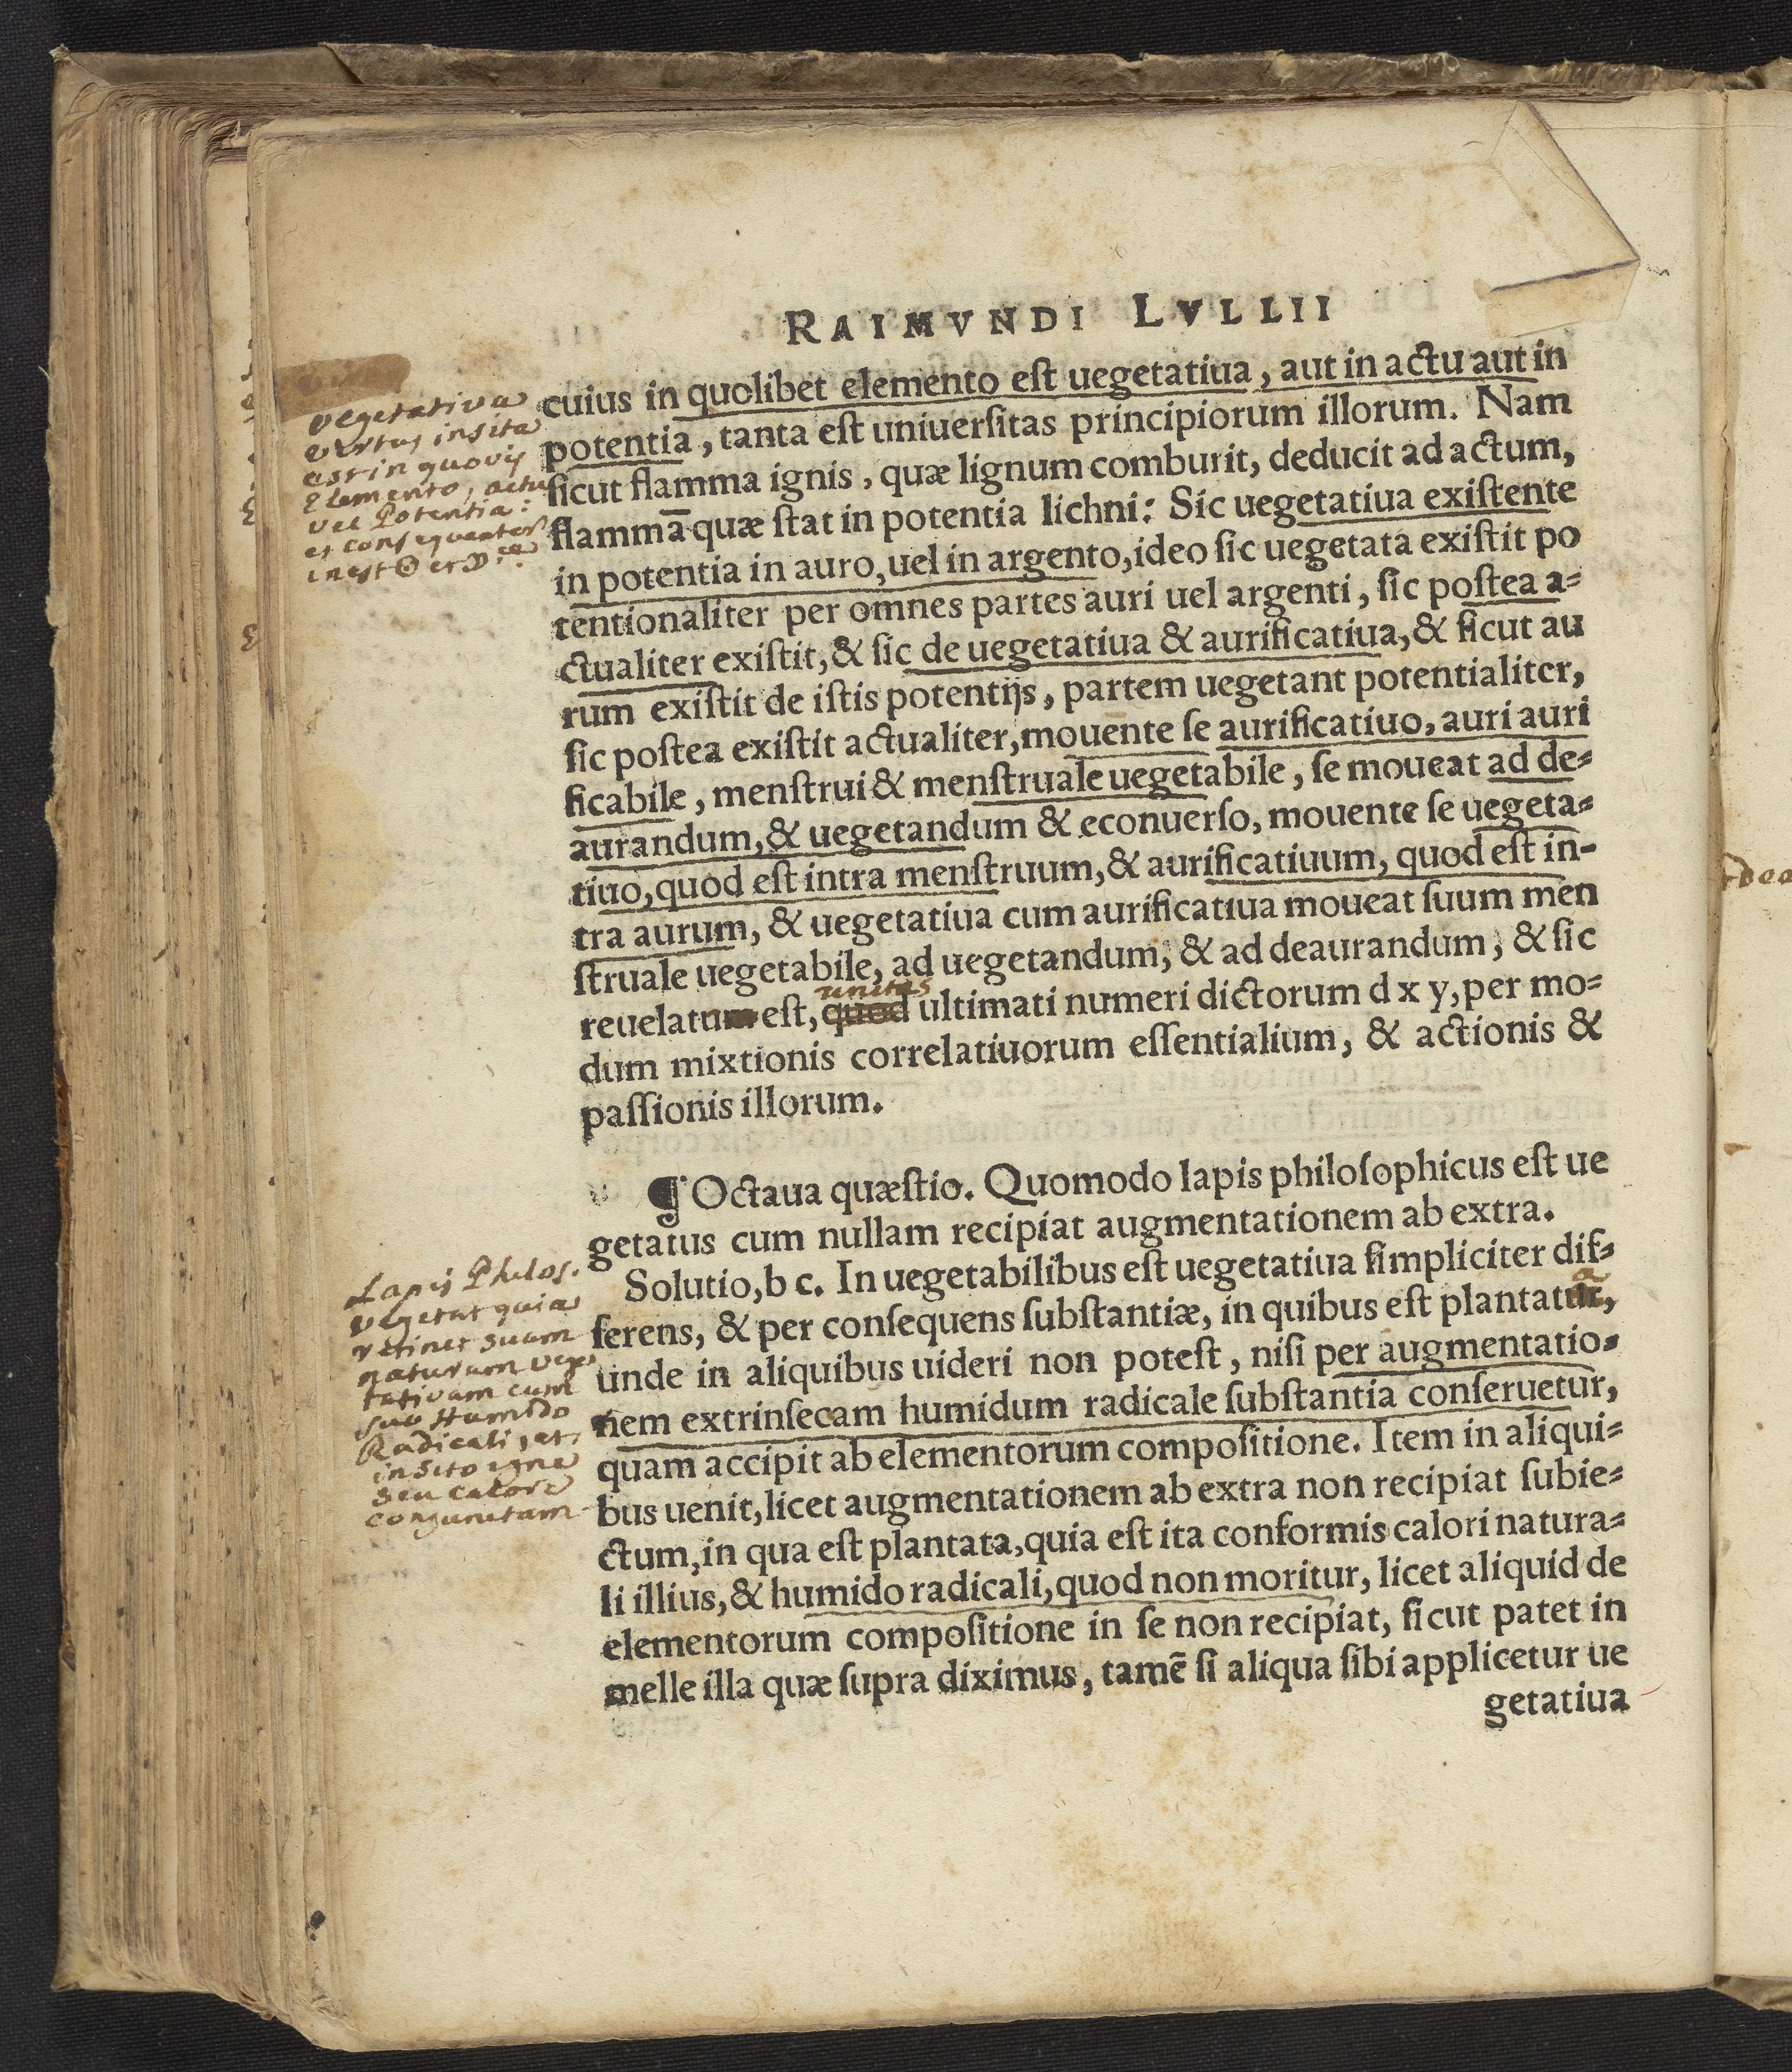 RAIMVNDI LVLLII
cuius in quolibet elemento est uegetatiua, aut in actu aut in
potentia, tanta est uniuersitas principiorum illorum. Nam
sicut flamma ignis, quæ lignum comburit, deducit ad actum,
flammā quæ stat in potentia lichni: Sic uegetatiua existente
in potentia in auro, uel in argento, ideo sic uegetata existit po
tentionaliter per omnes partes auri uel argenti, sic postea a-
ctualiter existit, & sic de uegetatiua & aurificatiua, & sicut au
rum existit de istis potentijs, partem uegetant potentialiter,
sic postea existit actualiter, mouente se aurificatiuo, auri auri
ficabile, menstrui & menstruale uegetabile, se moueat ad de-
aurandum, & uegetandum & econuerso, mouente se uegeta-
tiuo, quod est intra menstruum, & aurificatiuum, quod est in-
tra aurum, & uegetatiua cum aurificatiua moueat suum men
struale uegetabile, ad uegetandum, & ad deaurandum, & sic
unitas
reuelatum est, quod ultimati numeri dictorum d x y, per mo-
dum mixtionis correlatiuorum essentialium, & actionis &
passionis illorum.
¶ Octaua quæstio. Quomodo lapis philosophicus est ue
getatus cum nullam recipiat augmentationem ab extra.
Solutio, b c. In uegetabilibus est uegetatiua simpliciter dif-
a
ferens, & per consequens substantiæ, in quibus est plantatur,
unde in aliquibus uideri non potest, nisi per augmentatio-
nem extrinsecam humidum radicale substantia conseruetur,
quam accipit ab elementorum compositione. Item in aliqui-
bus uenit, licet augmentationem ab extra non recipiat subie-
ctum, in qua est plantata, quia est ita conformis calori natura-
li illius, & humido radicali, quod non moritur, licet aliquid de
elementorum compositione in se non recipiat, sicut patet in
melle illa quæ supra diximus, tamē si aliqua sibi applicetur ue
getatiua
vegetativa
virtus insita
est in quovis
Elemento, actu
vel Potentia:
et consequenter
inest ☉ et ☽
Lapis Philos.
vegetat quia
retinet suam
naturam vege
tativam cum
suo Humido
Radicali, et
insito igne
seu calore
conjunctam